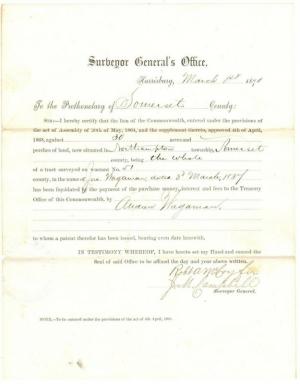 Surveyor General's Office,
Harrisburg, March 1870
To the Prothonotary of Somerset County:
SIR:—I hereby certify that the lien of the Commonwealth, entered under the provisions of
the act of Assembly of 20th of May, 1864, and the supplement thereto, approved 4th of April,
1868, against 30 acres and
perches of land, now situated in Northampton township, Somerset
county, being the whole
of a tract surveyed on warrant No.
county, in the name of Wagaman dated 3d March, 1787
has been liquidated by the payment of the purchase money, interest and fees to the Treasury
Office of this Commonwealth, by
Wagaman.
to whom a patent therefor has been issued, bearing even date herewith.
IN TESTIMONY WHEREOF, I have set my Hand and caused the
Seal of said Office to be affixed the day and year above written.
Surveyor General.
NOTE.—To be entered under the provisions of the act of 4th April, 1868.